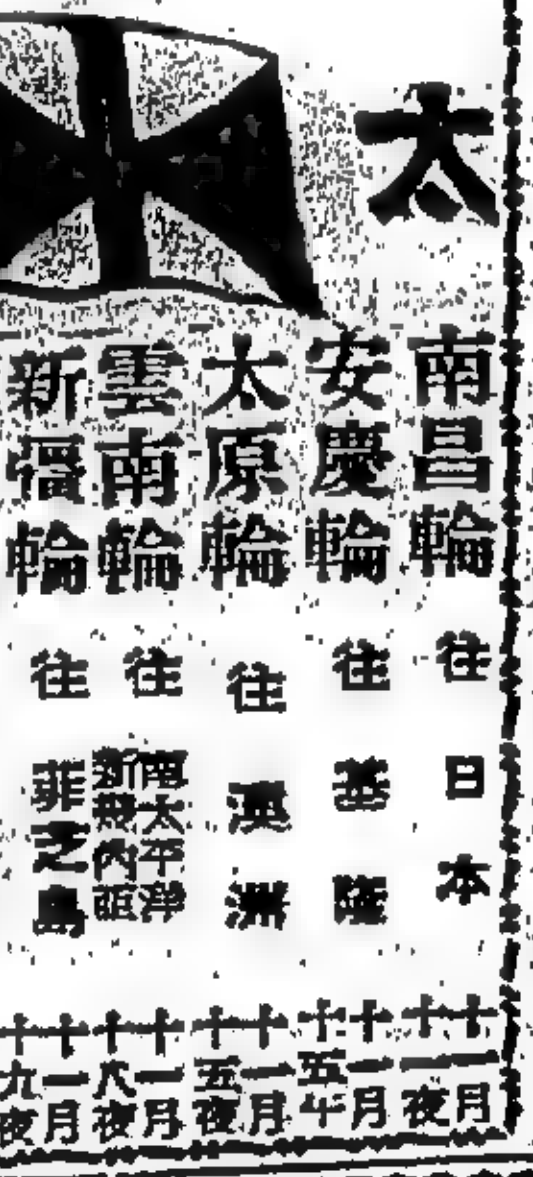 太
南昌輪 往 日本 十一月十一夜
安慶輪 往 基隆 十一月十五午
太原輪 往 澳洲 十一月十五夜
雲南輪 往 南太平洋新幾內亞 十一月十八夜
新 輪 往 菲之島 十一月十九夜